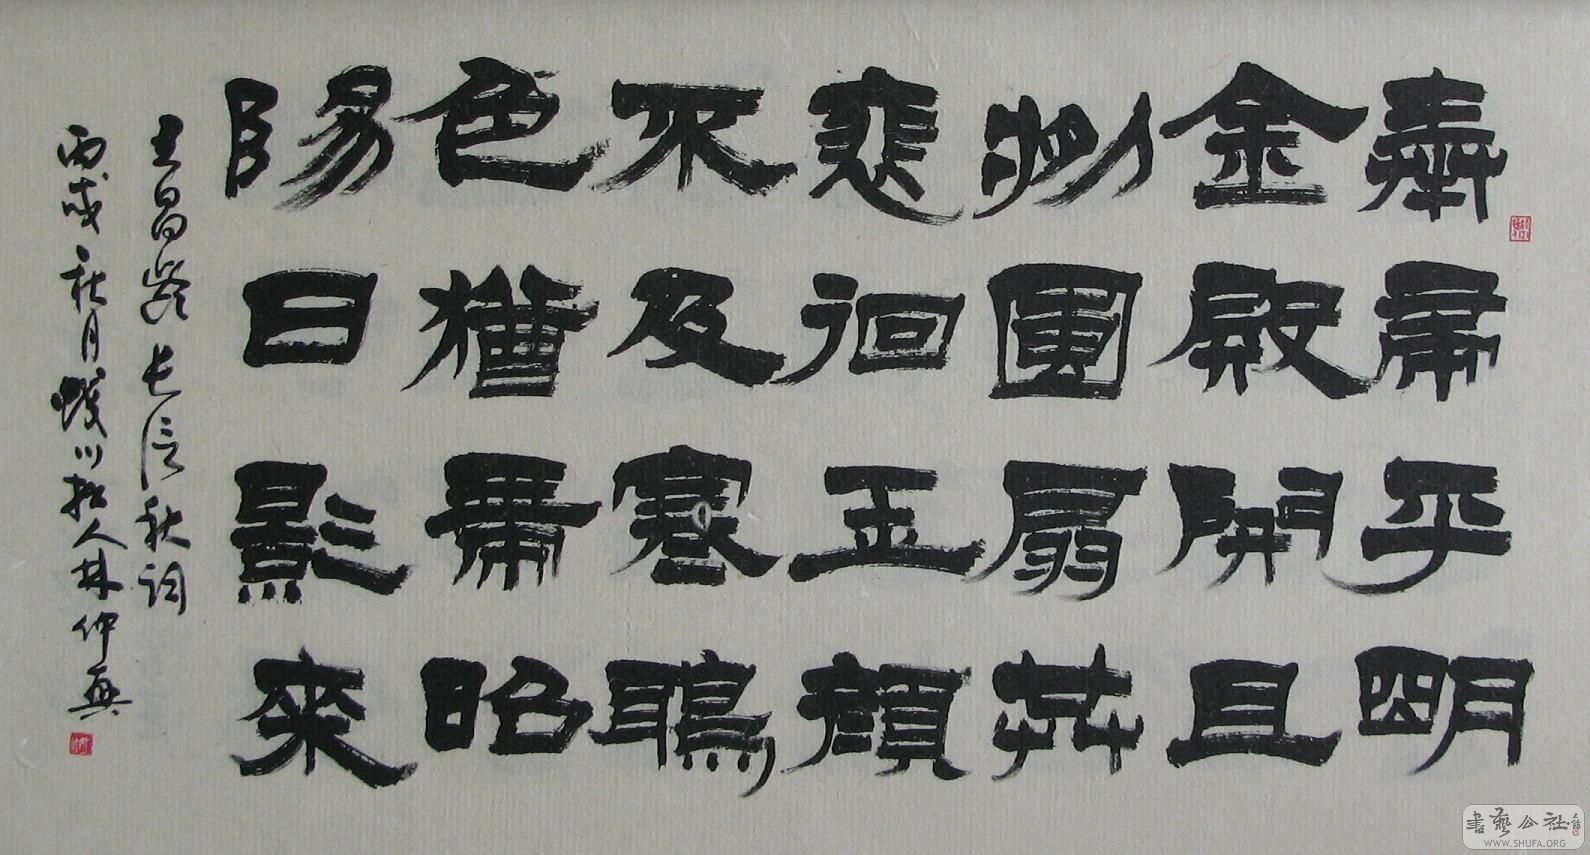 奉帚平明
金殿開且
將團扇共
裴徊玉顏
不及寒鴉
色猶帶昭
陽日影來
王昌齡長信秋詞
丙戌秋月川人林仲興
書藝公社
WWW.SHUFA.ORG